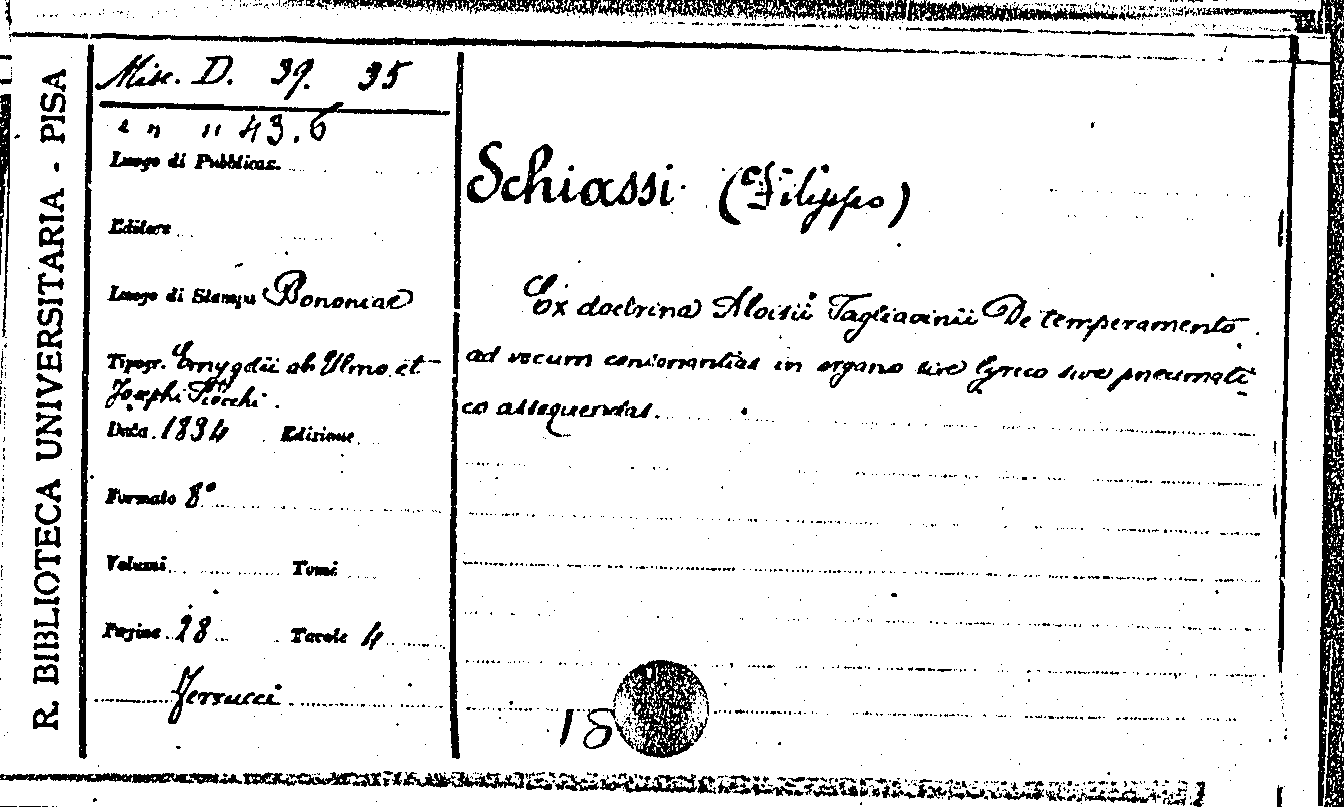 R. BIBLIOTECA UNIVERSITARIA - PISA
Misc. D. 39. 35
" " " 43.6
Luogo di Pubblicaz.
Editore
Luogo di Stampa Bononiae
Tipogr. Emygdii ab Ulmo et
Josephi Tiocchi.
Data 1834 Edizione
Formato 8°
Volumi Tomi
Pagine 28 Tavole 4
Schiassi (Filippo)
Ex doctrina Aloisii Tagliavinii De temperamento
ad vocum consonantias in organo sive lyrico sive pneumati
co assequendas.
18